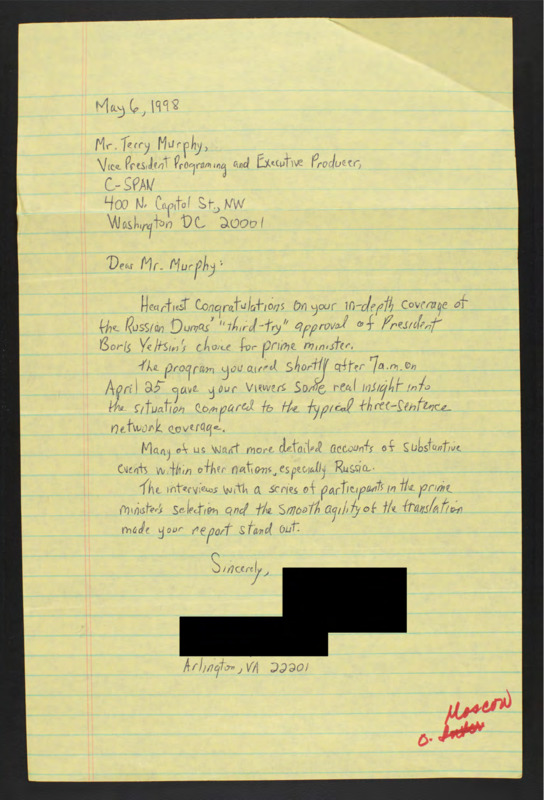 May 6, 1998
Mr. Terry Murphy,
Vice President Programing and Executive Producer,
C-SPAN
400 N. Capitol St., NW
Washington DC 20001
Dear Mr. Murphy:
Heartiest Congratulations on your in-depth coverage of
the Russian Dumas' "third-try" approval of President
Boris Yeltsin's choice for prime minister.
The program you aired shortly after 7a.m. on
April 25 gave your viewers some real insight into
the situation compared to the typical three-sentence
network coverage.
Many of us want more detailed accounts of substantive
events within other nations, especially Russia.
The interviews with a series of participants in the prime
minister's selection and the smooth agility of the translation
made your report stand out.
Sincerely,
Arlington, VA 22201
Moscow